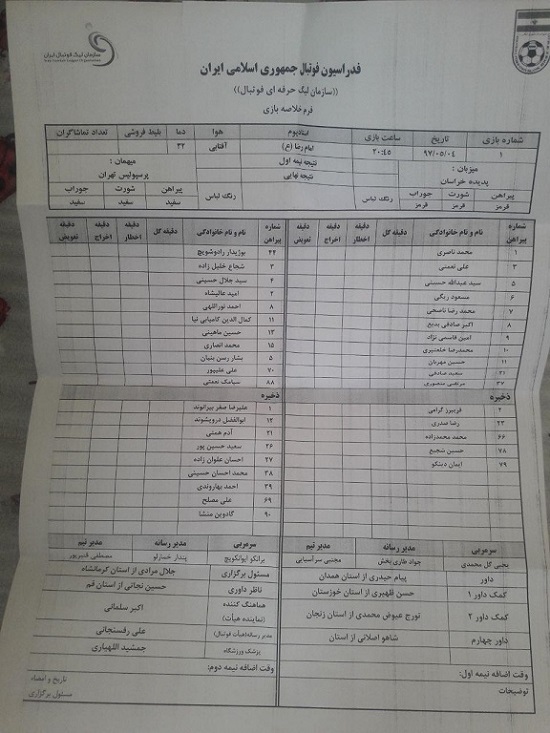 سازمان لیگ فوتبال ایران
فدراسیون فوتبال جمهوری اسلامی ایران
((سازمان لیگ حرفه ای فوتبال))
فرم خلاصه بازی
شماره بازی تاریخ ساعت بازی استادیوم هوا دما بلیط فروشی تعداد تماشاگران
۱ ۹۷/۰۵/۰۴ ۲۰:۴۵ امام رضا (ع) آفتابی ۳۲
میزبان : نتیجه نیمه اول میهمان :
پدیده خراسان نتیجه نهایی پرسپولیس تهران
پیراهن شورت جوراب رنگ لباس رنگ لباس پیراهن شورت جوراب
قرمز قرمز قرمز سفید سفید سفید
شماره پیراهن نام و نام خانوادگی دقیقه گل دقیقه اخطار دقیقه اخراج دقیقه تعویض
۱ محمد ناصری
۳ علی نعمتی
۵ سید عبدالله حسینی
۶ مسعود ریگی
۷ محمد رضا ناصحی
۸ اکبر صادقی بدیع
۹ امین قاسمی نژاد
۱۰ محمدرضا خلعتبری
۱۱ حسین مهربان
۲۱ سعید صادقی
۳۷ مرتضی منصوری
ذخیره
۲ فریبرز گرامی
۲۳ رضا صدری
۶۶ محمد محمدزاده
۷۸ حسین شجیع
۷۹ ایمان دینکو
شماره پیراهن نام و نام خانوادگی دقیقه گل دقیقه اخطار دقیقه اخراج دقیقه تعویض
۴۴ بوژیدار رادوشویچ
۳ شجاع خلیل زاده
۴ سید جلال حسینی
۲ امید عالیشاه
۸ احمد نوراللهی
۱۱ کمال الدین کامیابی نیا
۱۳ حسین ماهینی
۱۵ محمد انصاری
۵ بشار رسن بنیان
۷۰ علی علیپور
۸۸ سیامک نعمتی
ذخیره
۱ علیرضا صفر بیرانوند
۱۲ ابوالفضل درویشوند
۲۱ آدم همتی
۲۶ سعید حسین پور
۲۷ احسان علوان زاده
۳۸ محمد احسان حسینی
۳۹ احمد بهاروندی
۶۹ علی مصلح
۹۰ گادوین منشا
سرمربی مدیر رسانه مدیر تیم
یحیی گل محمدی جواد طاری بخش مجتبی سرآسیایی
داور پیام حیدری از استان همدان
کمک داور ۱ حسن ظهیری از استان خوزستان
کمک داور ۲ تورج عیوض محمدی از استان زنجان
داور چهارم شاهو اصلانی از استان
وقت اضافه نیمه اول:
توضیحات
سرمربی مدیر رسانه مدیر تیم
برانکو ایوانکویچ پندار خمارلو مصطفی قنبرپور
مسئول برگزاری جلال مرادی از استان کرمانشاه
ناظر داوری حسین نجاتی از استان قم
هماهنگ کننده (نماینده هیأت) اکبر سلمانی
مدیر رسانه(هیأت فوتبال) علی رفسنجانی
پزشک ورزشگاه جمشید اللهیاری
وقت اضافه نیمه دوم:
تاریخ و امضاء
مسئول برگزاری